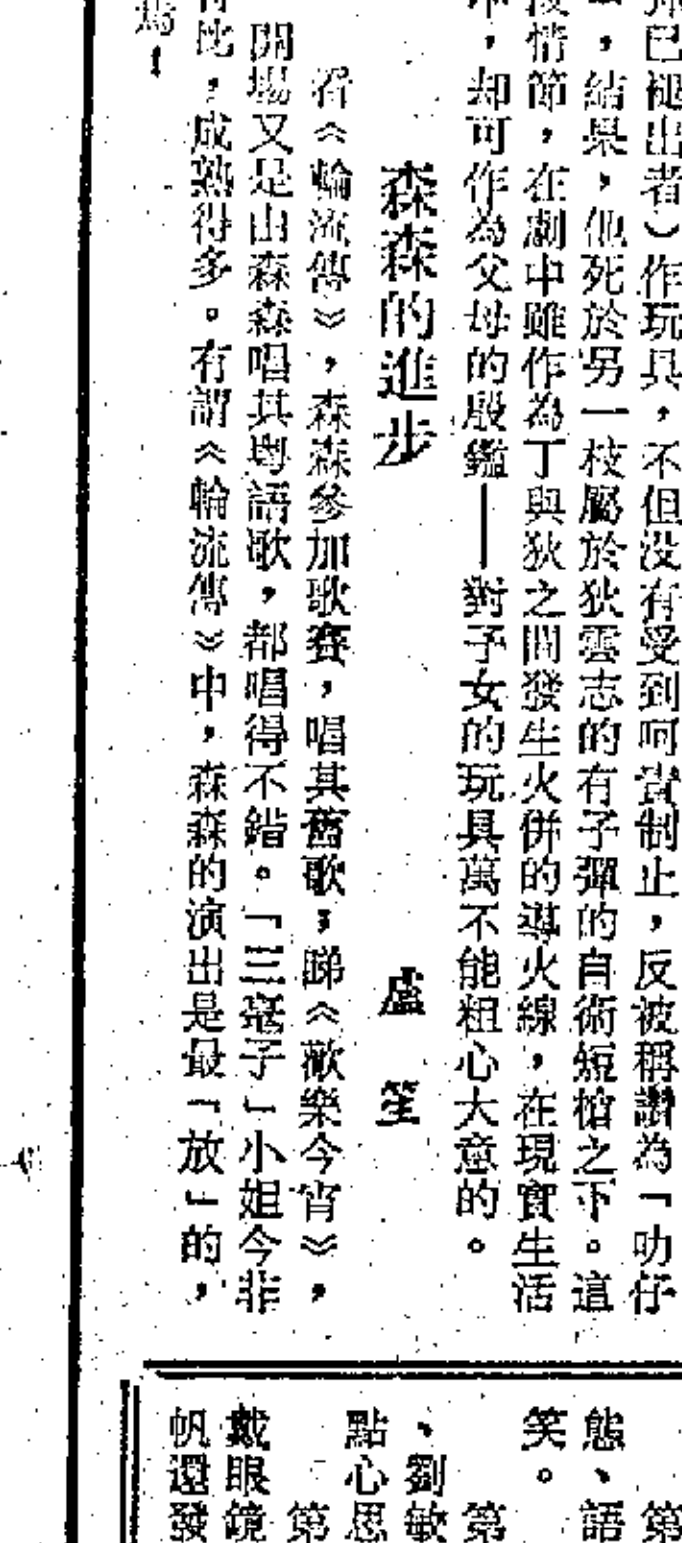 已褪出者）作玩具，不但没有受到呵責制止，反被稱讚為「叻仔
，結果，他死於另一枝屬於狄雲志的有子彈的自衛短槍之下。這
情節，在劇中雖作為丁與狄之間發生火併的導火線，在現實生活
中，却可作為父母的殷鑑——對子女的玩具萬不能粗心大意的。
森森的進步
盧笙
看《輪流傳》，森森參加歌賽，唱其舊歌，睇《歡樂今宵》，
開場又是由森森唱其粵語歌，都唱得不錯。「三毫子」小姐今非
比，成熟得多。有謂《輪流傳》中，森森的演出是最「放」的，
焉！
第
態、語
笑。
第
、劉敏
點心思
第
戴眼鏡
帆還發